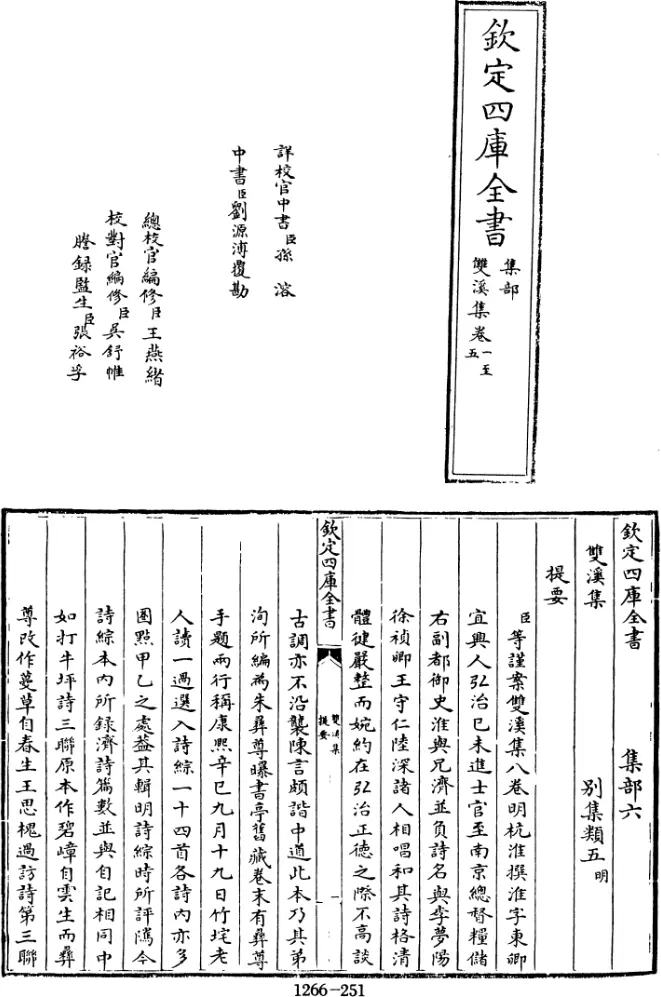 欽定四庫全書
集部
雙溪集卷一至
五
詳校官中書臣孫溶
中書臣劉源溥覆勘
總校官編修臣王燕緒
校對官編修臣吳舒帷
謄録監生臣張裕孚
欽定四庫全書 集部六
雙溪集 别集類五明
提要
臣等謹案雙溪集八卷明杭淮撰淮字東卿
宜興人弘治已未進士官至南京總督糧儲
右副都御史淮與兄濟並負詩名與李夢陽
徐禎卿王守仁陸深諸人相唱和其詩格清
體健嚴整而婉約在弘治正德之際不高談
欽定四庫全書
雙溪集
提要
一
古調亦不沿襲陳言頗諧中道此本乃其弟
洵所編為朱彞尊曝書亭舊藏卷末有彞尊
手題兩行稱康熙辛巳九月十九日竹垞老
人讀一過選入詩綜一十四首各詩内亦多
圈點甲乙之處葢其輯明詩綜時所評隲今
詩綜本内所録濟詩篇數並與自記相同中
如打牛坪詩三聯原本作碧嶂自雲生而彞
尊改作蔓草自春生王思槐過訪詩第三聯
1266-251